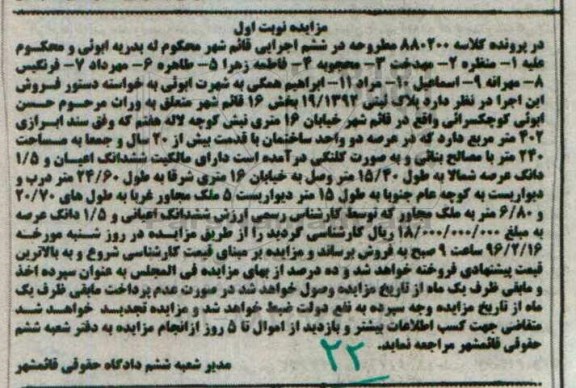 مزایده نوبت اول
در پرونده کلاسه ۸۸۰۲۰۰ مطروحه در ششم اجرایی قائم شهر محکوم له بدریه ابوئی و محکوم
علیه ۱- منظره ۲- مهدخت ۳- محجوبه ۴- فاطمه زهرا ۵- طاهره ۶- مهرداد ۷- فرنگیس
۸- مهرانه ۹- اسماعیل ۱۰- مراد ۱۱- ابراهیم همگی به شهرت ابوئی به خواسته دستور فروش
این اجرا در نظر دارد پلاک ثبتی ۱۹/۱۳۹۲ بخش ۱۶ قائم شهر متعلق به وراث مرحوم حسن
ابوئی کوچکسرائی واقع در قائم شهر خیابان ۱۶ متری نبش کوچه لاله هفتم که وفق سند ابرازی
۴۰۲ متر مربع دارد که در عرصه دو واحد ساختمان با قدمت بیش از ۲۰ سال و جمعا به مساحت
۲۴۰ متر با مصالح بنائی و به صورت کلنگی درآمده است دارای مالکیت ششدانگ اعیان و ۱/۵
دانگ عرصه شمالا به طول ۱۵/۴۰ متر وصل به خیابان ۱۶ متری شرقا به طول ۲۴/۶۰ متر درب و
دیواریست به کوچه عام جنوبا به طول ۱۵ متر دیواریست ۵ ملک مجاور غربا به طول های ۲۰/۷۰
و ۶/۸۰ متر به ملک مجاور که توسط کارشناس رسمی ارزش ششدانگ اعیانی و ۱/۵ دانگ عرصه
به مبلغ ۱۸/۰۰۰/۰۰۰/۰۰۰ ریال کارشناسی گردید را از طریق مزایده در روز شنبه مورخه
۹۶/۲/۱۶ ساعت ۹ صبح به فروش برساند و مزایده بر مبنای قیمت کارشناسی شروع و به بالاترین
قیمت پیشنهادی فروخته خواهد شد و ده درصد از بهای مزایده فی المجلس به عنوان سپرده اخذ
و مابقی ظرف یک ماه از تاریخ مزایده وصول خواهد شد در صورت عدم پرداخت مابقی ظرف یک
ماه از تاریخ مزایده وجه سپرده به نفع دولت ضبط خواهد شد و مزایده تجدید خواهد شد
متقاضی جهت کسب اطلاعات بیشتر و بازدید از اموال تا ۵ روز از انجام مزایده به دفتر شعبه ششم
حقوقی قائمشهر مراجعه نماید.
۲۲
مدیر شعبه ششم دادگاه حقوقی قائمشهر